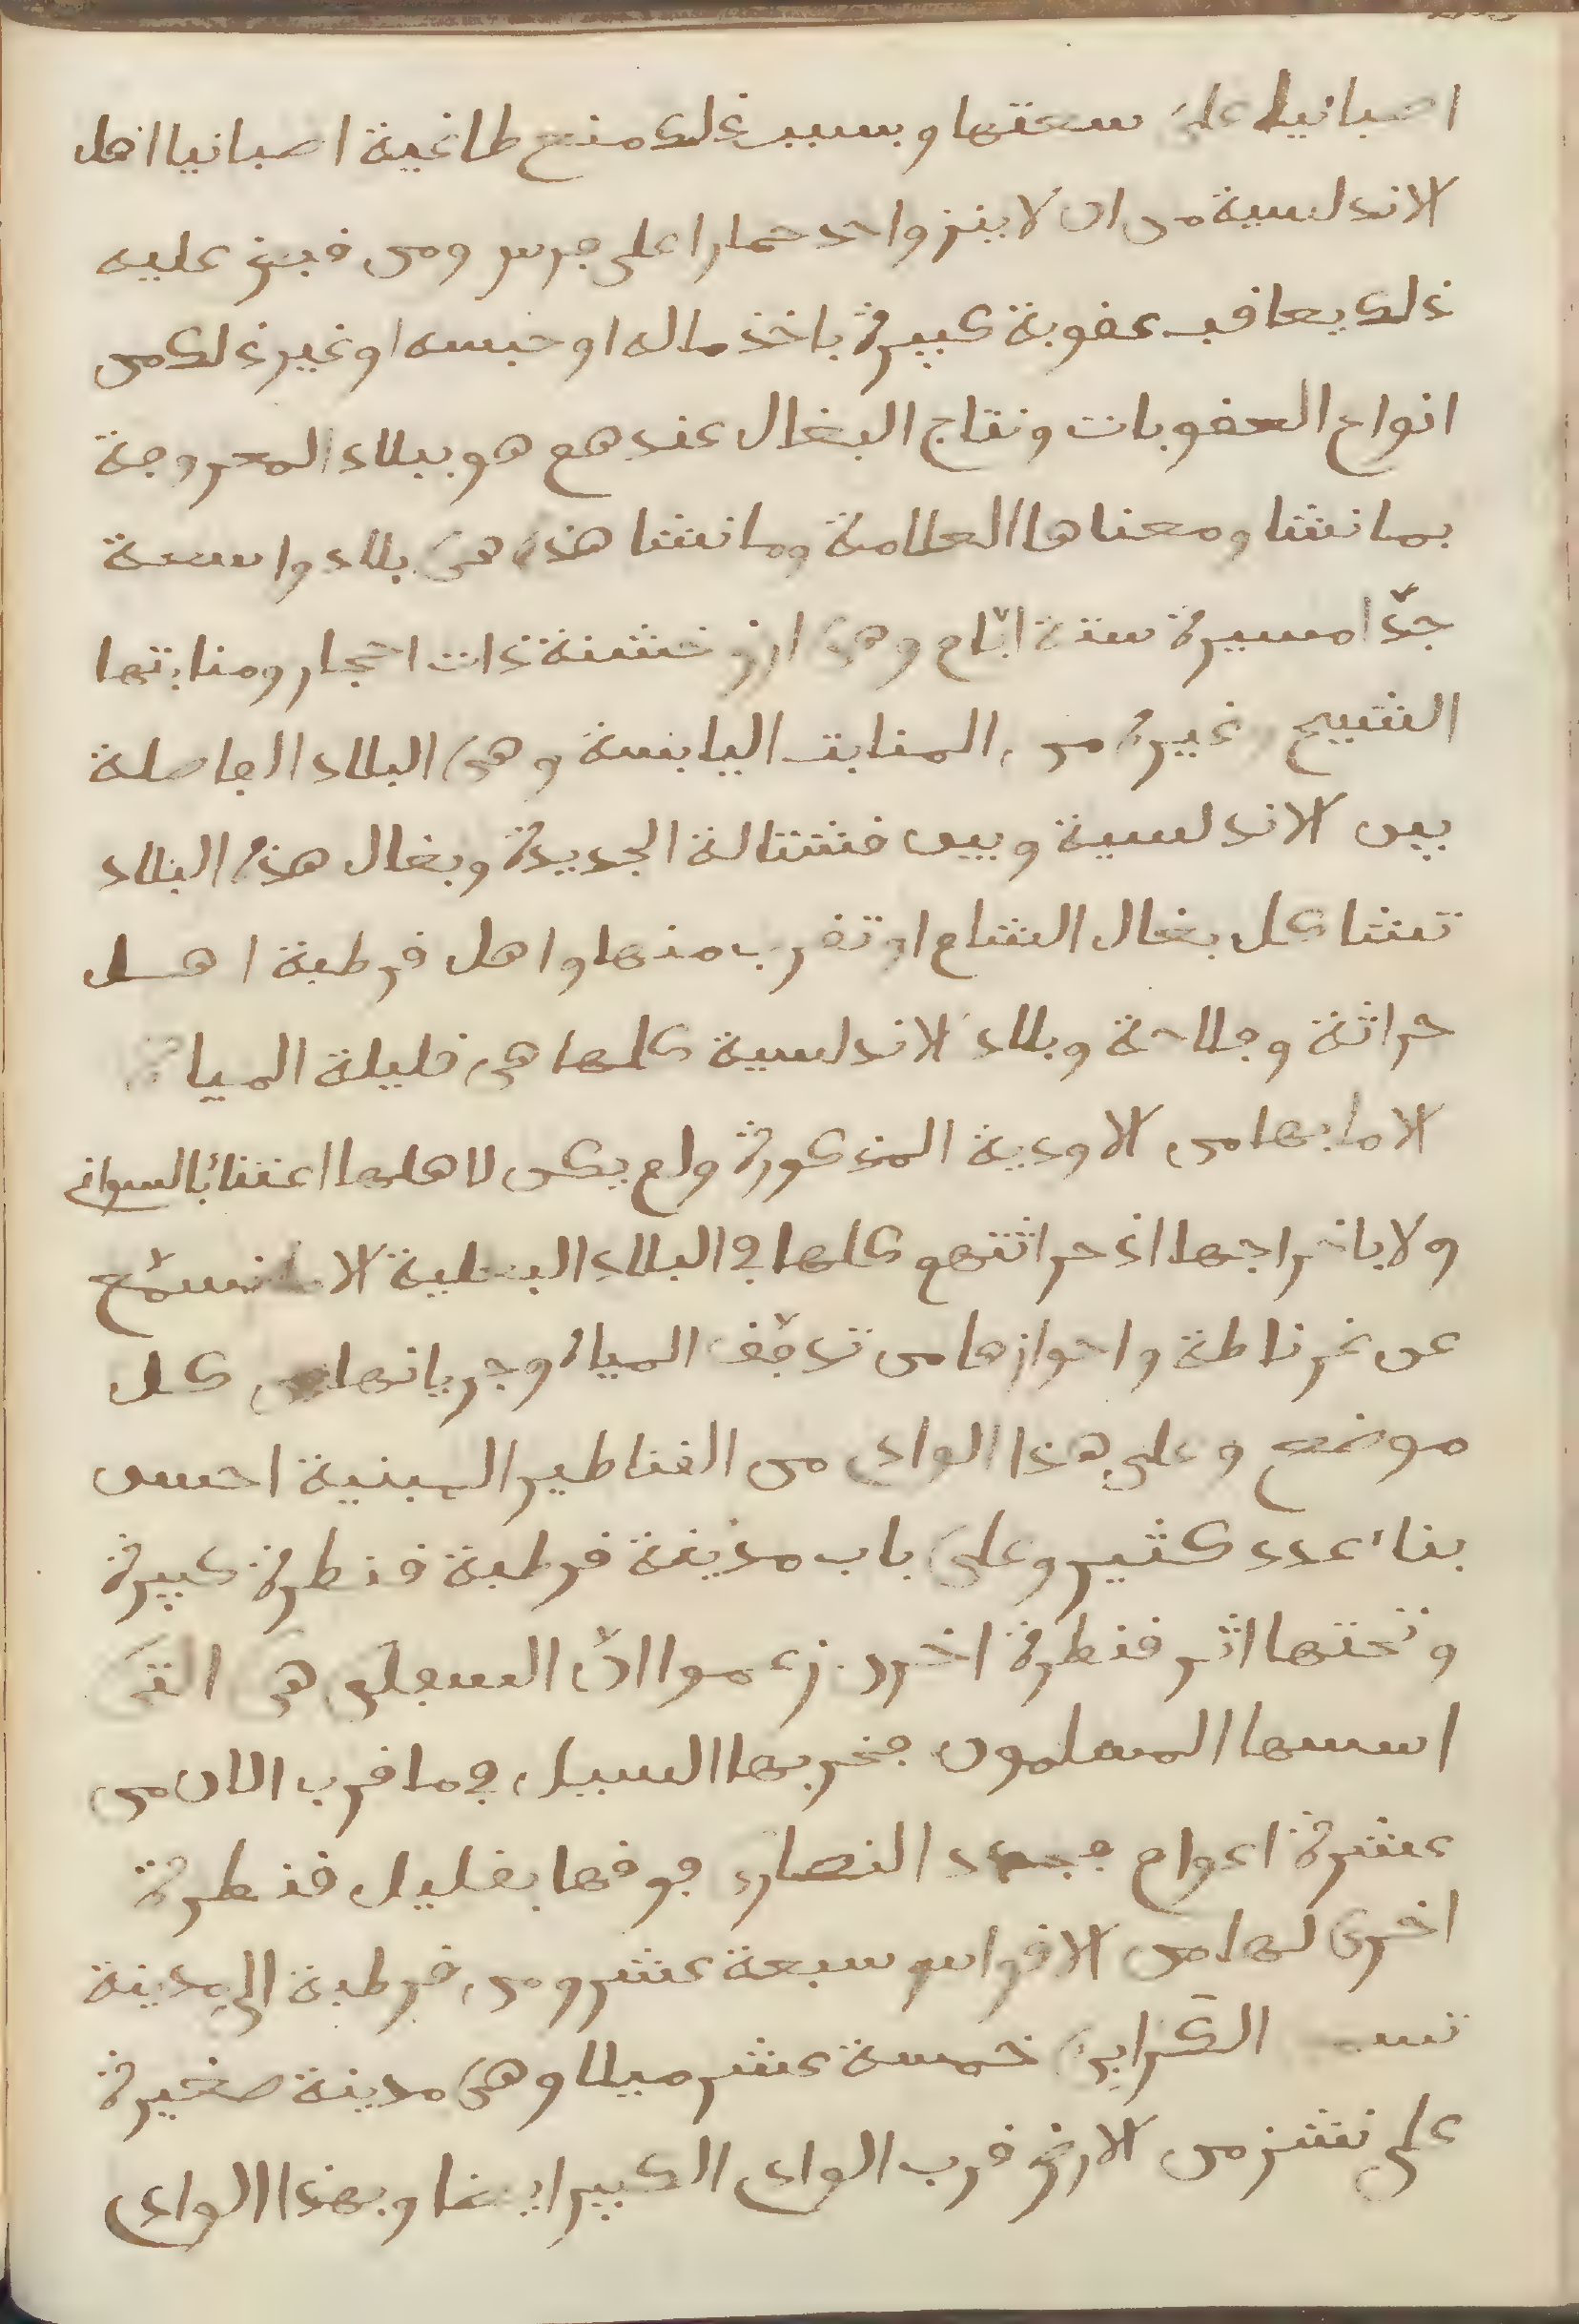 اصبانيا على سعتها وبسبب ذلك منع طاغية اصبانيا اهل
الاندلسية من ان لا ينز واحد حمارا على فرس ومن قبض عليه
ذلك يعاقب عقوبة كبيرة باخذ ماله او حبسه او غير ذلك من
انواع العقوبات ونتاج البغال عندهم هو ببلاد المعروفة
بمانشا ومعناها العلامة ومانشا هذه هي بلاد واسعة
جدّا مسيرة ستة ايّام وهي ارض خشنة ذات احجار ومنابتها
الشيح وغيره من المنابت اليابسة وهي البلاد الفاصلة
بين الاندلسية وبين قشتالة الجديدة وبغال هذه البلاد
تشاكل بغال الشام او تقرب منها واهل قرطبة اهل
حراثة وفلاحة وبلاد الاندلسية كلها هي قليلة المياه
الا ما بها من الاودية المذكورة ولم يكن لاهلها اعتناء بالسواني
ولا باخراجها اذ حراثتهم كلها في البلاد البعلية الا ما نسمع
عن غرناطة واحوازها من تدفّق المياه وجريانها من كل
موضع وعلى هذا الوادي من القناطير المبنية احسن
بناء عدد كثير وعلى باب مدينة قرطبة قنطرة كبيرة
وتحتها اثر قنطرة اخرى زعموا انّ السفلى هي التي
اسسها المسلمون فخربها السيل في ما قرب الان من
عشرة اعوام فجدد النصارى فوقها بقليل قنطرة
اخرى لها من الاقواس سبعة عشر ومن قرطبة الى مدينة
تسـ الكرابي خمسة عشر ميلا وهي مدينة صغيرة
على نشز من الارض قرب الوادي الكبير ايضا وبهذا الوادي